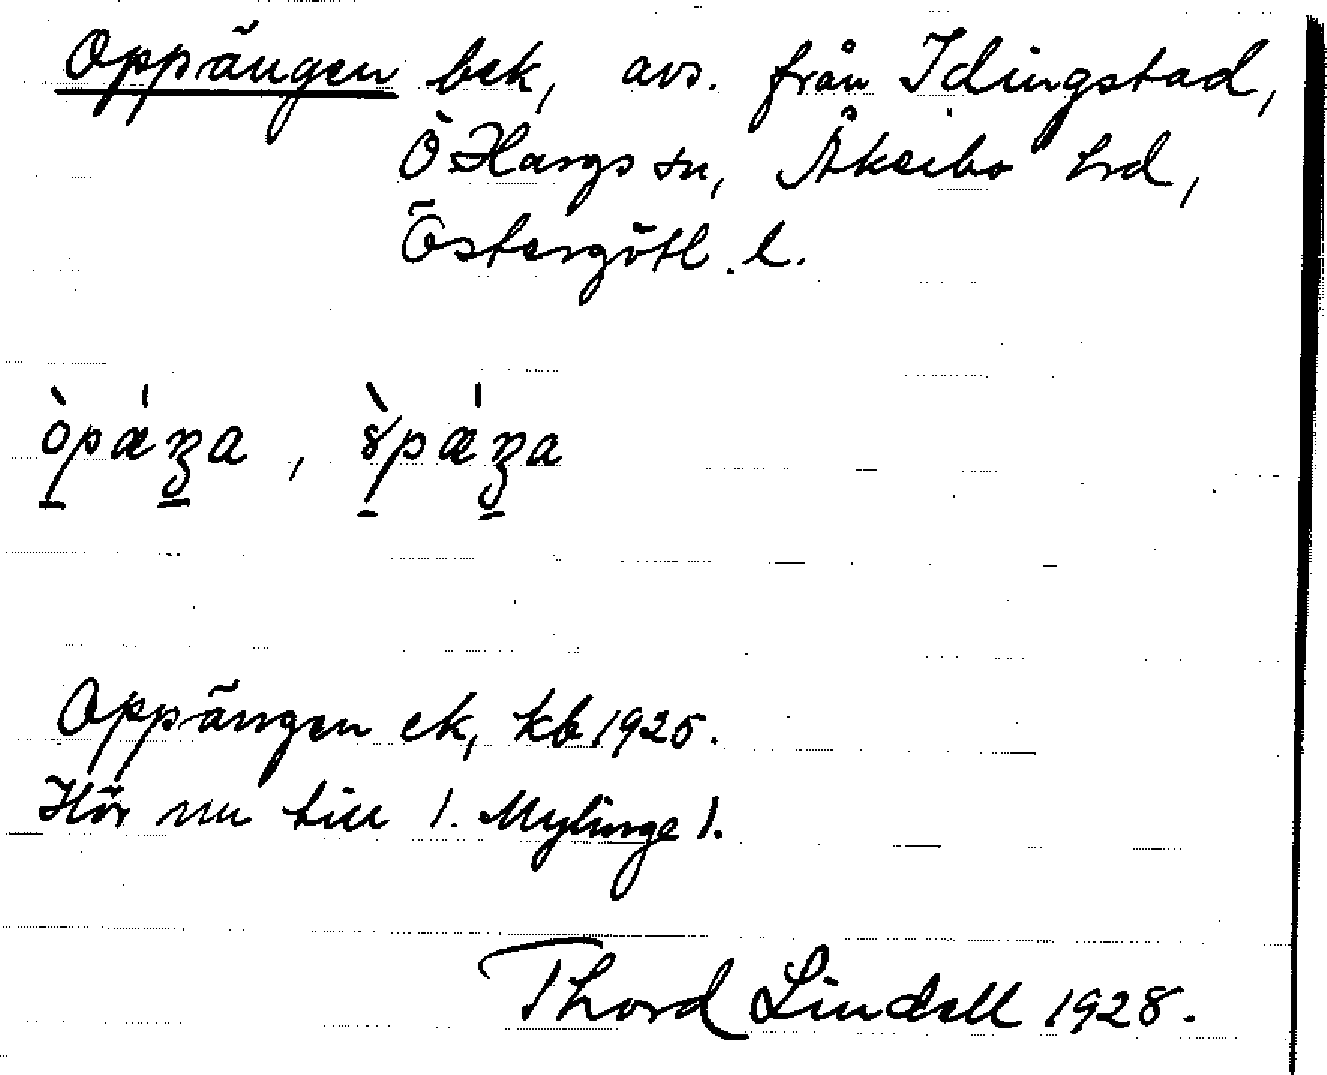 Oppängen bek, avs. från Idingstad,
Ö Hargs sn, Åkerbo hrd,
Östergötl. l.
òpǽŋa, ɤ̀pǽŋa
Oppängen ek, kb 1925.
Hör nu till 1. Mylinge 1.
Thord Lindell 1928.